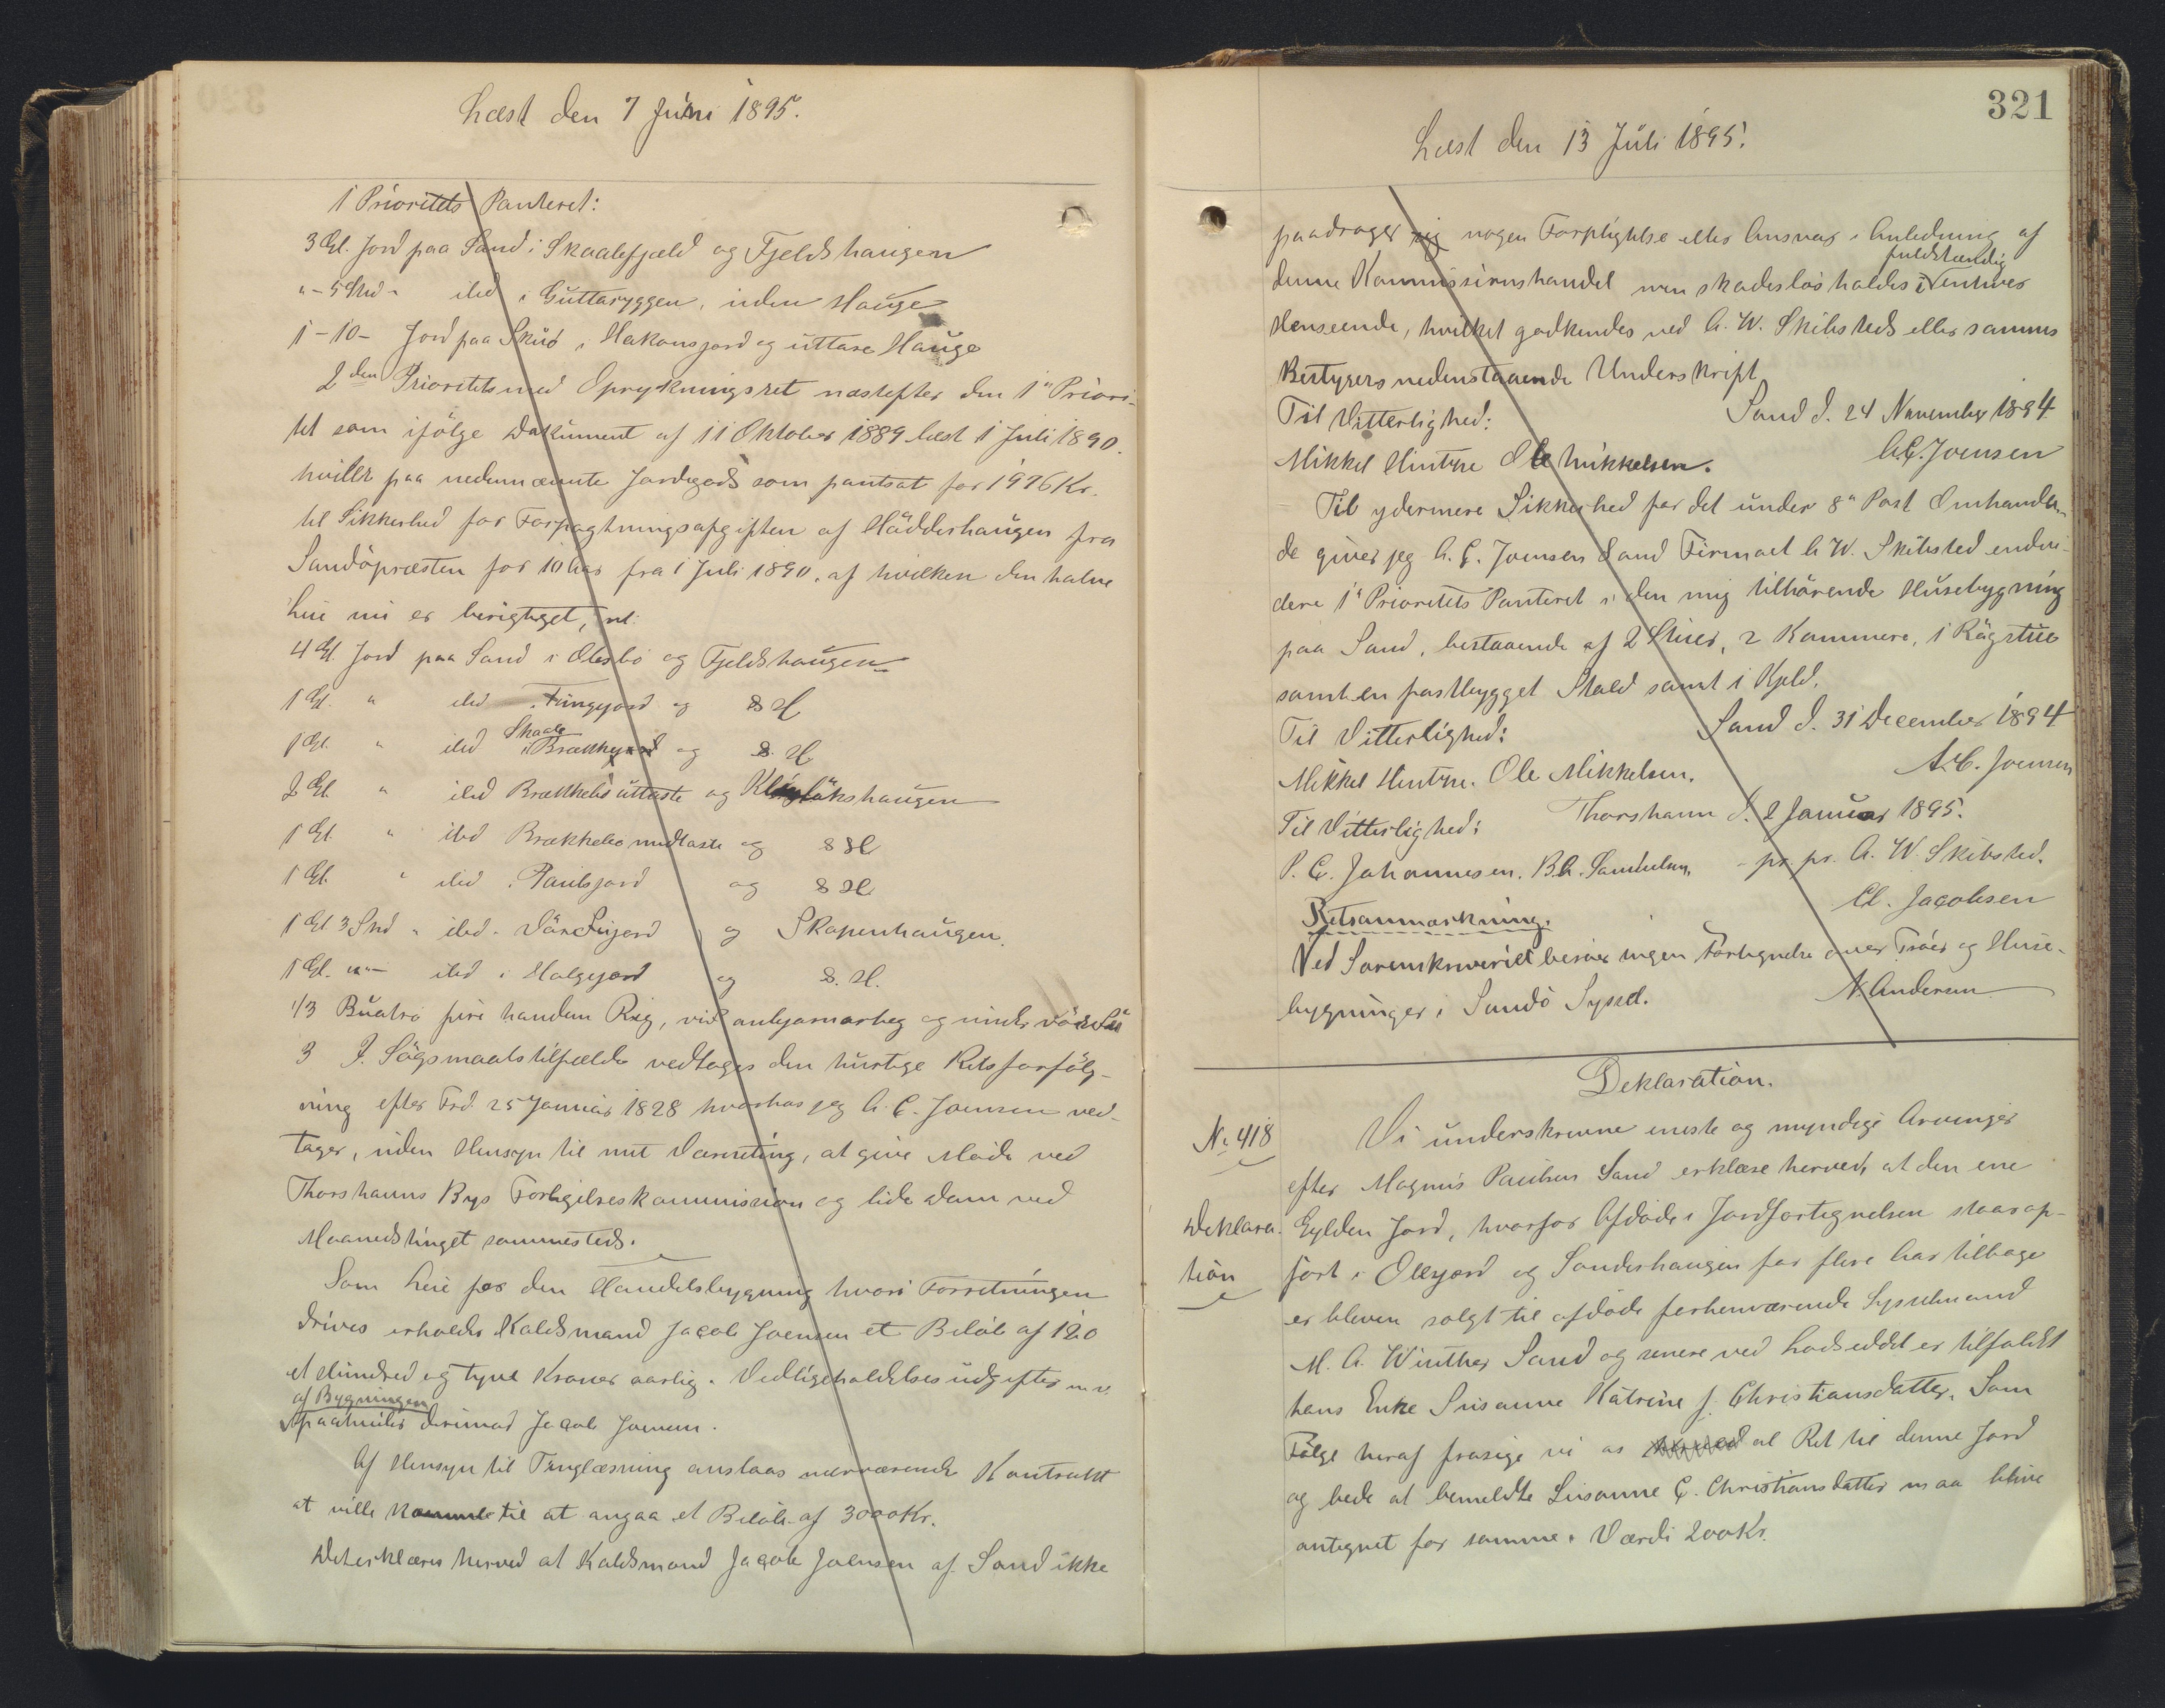 Læst den 7 Juni 1895.
1 Prioritets Panteret:
3 Gl. Jord paa Sand i Skaalefjæld og Fjeldshaugen
"-5 Skd - ibd i Guttaryggen, inden Hauge
1-10- Jord paa Skuö i Hakonsjord og uttare Hauge
2den Prioritets med Oprykningsret næstefter den 1ste Priori-
tet som ifölge Dokument af 11 Oktober 1889 læst 1 Juli 1890.
hviler paa nedennævnte Jordegods som pantsat for 1976 Kr.
til Sikkerhed for Forpagtningsafgiften af Häddershaugen fra
Sandöpræsten for 10 Aar fra 1 Juli 1890, af hvilken den halve
Leie nu er berigtiget, nl:
4 Gl. Jord paa Sand i Olesbö og Fjeldshaugen
1 Gl. " ibd. Tungejord og S H
1 Gl. " ibd Skaale og S. H
2 Gl. " ibd Brækkebö uttaste og haugen
1 Gl. " ibd Brækkebo midtaste og S H
1 Gl. " ibd. Paulsjord og S H
1 Gl 3 Skd " ibd. og Skapenhaugen.
1 Gl. " - ibd i Holgejord og S. H.
1/3 Buatrö firi handan Rig, við og
3 I Sögsmaalstilfælde vedtages den hurtige Retsforfölg-
ning efter Frd. 25 Januar 1828 hvorhos jeg A. C. Joensen ved-
tager, uden Hensyn til mit Værneting, at give Möde ved
Thorshavns Bys Forligelseskommission og lide Dom ved
Maanedstinget sammesteds.
Som Leie for den Handelsbygning hvori Forretningen
drives erholder Kaldsmand Jacob Joensen et Belöb af 120
et Hundred og tyve Kroner aarlig. Vedligeholdelsesudgifter m. v.
af Bygningen
paahviler derimod Jacob Joensen.
Af Hensyn til Tinglæsning anslaas nærværende Kontrakt
at ville komme til at angaa et Belöb af 3000 Kr.
Det erklæres herved at Kaldsmand Jacob Joensen af Sand ikke
321
Læst den 13 Juli 1895.
paadrager sig nogen Forpligtelse eller Ansvar i Anledning af
fuldstændig
denne Kommissionshandel men skadeslös holdes i enhver
Henseende, hvilket godkendes ved A. W. Skibsteds eller sammes
Bestyrers nedenstaaende Underskrift
Til Vitterlighed: Sand d. 24 November 1894
Mikkel Hentze Ole Mikkelsen. A.C. Joensen
Til ydermere Sikkerhed for det under 8de Post Omhandle-
de giver jeg A. C. Joensen Sand Firmaet A W. Skibsted endvi-
dere 1ste Prioritets Panteret i den mig tilhörende Husebygning
paa Sand, bestaaende af 2 Stuer, 2 Kammere, 1 Rögstue
samt en fastbygget Stald samt 1 Kjeld.
Til Vitterlighed: Sand d. 31 December 1894
Mikkel Hentze. Ole Mikkelsen. A.C. Joensen
Til Vitterlighed: Thorshavn d. 2 Januar 1895.
P. C. Johannesen. B.A. Samuelsen - pr. pr. A. W. Skibsted.
Cl. Jacobsen
Retsanmærkning.
Ved Sorenskriveriet beror ingen Fortegnelse over Tröer og Huse-
bygninger i Sandö Syssel. N. Andersen
Deklaration.
No 418
Deklara-
tion
Vi underskrevne eneste og myndige Arvinger
efter Magnus Paulsen Sand erklære herved, at den ene
Gylden Jord, hvorfor Afdöde i Jordfortegnelsen staar op-
fört i Ollyjord og Sondershaugen for flere Aar tilbage
er bleven solgt til afdöde forhenværende Sysselmand
M. A. Winther Sand og senere ved Lodseddel er tilfaldet
hans Enke Susanne Katrine f. Christiansdatter. Som
Fölge heraf frasige vi os al Ret til denne Jord
og bede at bemeldte Susanne C. Christiansdatter maa blive
antegnet for samme. Værdi 200 Kr.